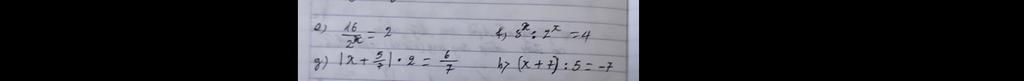 e) 16/2^x = 2 f) 8^x : 2^x = 4
g) |x + 5/7| · 2 = 6/7 h) (x + 7) : 5 = -7